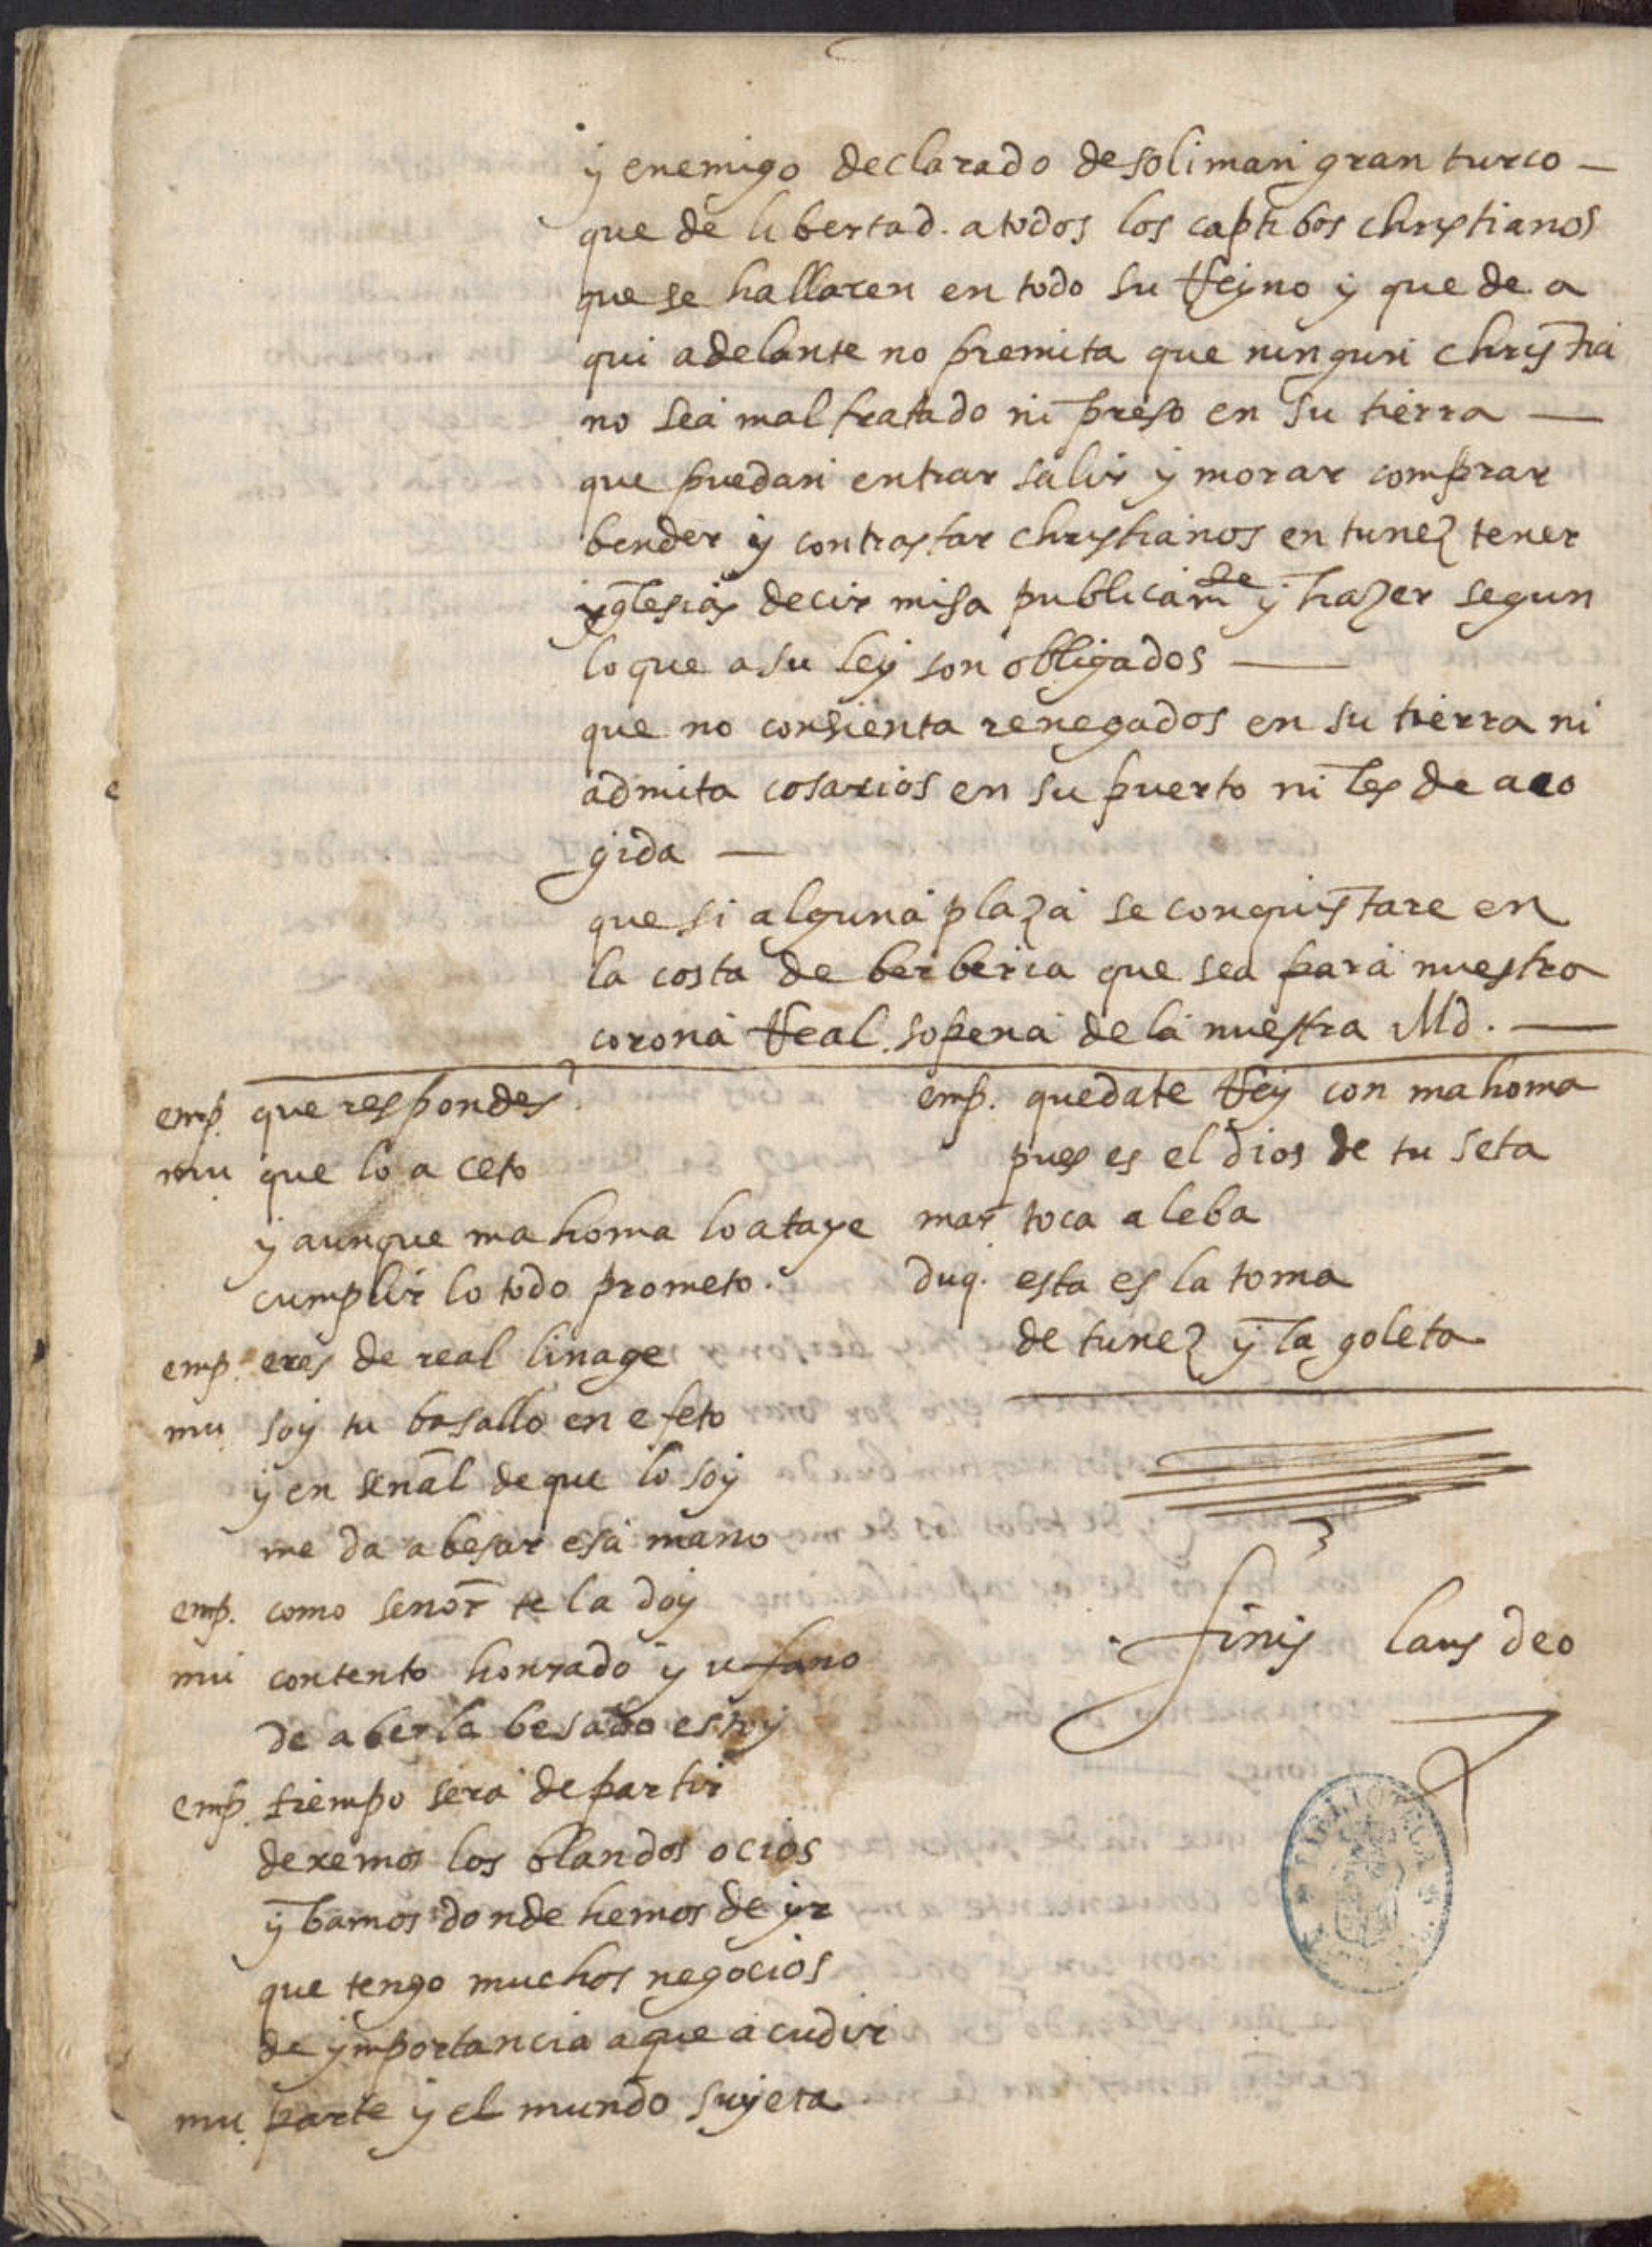 y enemigo declarado de soliman gran turco —
que de libertad. a todos los captibos chrystianos
que se hallaren en todo su Reyno y que de a
qui adelante no premita que ningun chrystia
no sea mal tratado ni preso en su tierra —
que puedan entrar salir y morar comprar
bender y contrastar chrystianos en tunez tener
yglesias decir misa publicamte y hazer segun
lo que a su ley son obligados —
que no consienta renegados en su tierra ni
admita cosarios en su puerto ni les de aco
gida —
que si alguna plaza se conquistare en
la costa de berberia que sea para nuestra
corona Real. sopena de la nuestra Md. —
emp. que respondes?
mu que lo a ceto
y aunque mahoma lo ataxe
cumplir lo todo prometo.
emp. eres de real linage
mu. soy tu basallo en efeto
y en señal de que lo soy
me da a besar esa mano
emp. como señor te la doy
mu contento honrado y ufano
de aberla besado estoy
emp. tiempo sera de partir
dexemos los blandos ocios
y bamos donde hemos de yr
que tengo muchos negocios
de ymportancia a que acudir
mu. parte y el mundo sujeta
emp. quedate Rey con mahoma
pues es el dios de tu seta
mar toca a leba
duq. esta es la toma
de tunez y la goleta
finis laus deo
BIBLIOTECA